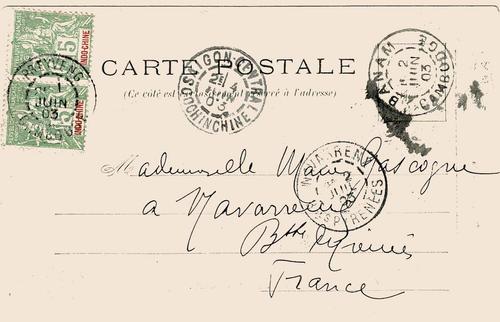 5
INDO-CHINE
5
INDO-CHINE
1
JUIN
03
CARTE POSTALE
(Ce côté est exclusivement réservé à l'adresse)
SAIGON-CENTRAL
2E
4
JUIN
03
COCHINCHINE
BANAM
2
JUIN
03
CAMBODGE
Mademoiselle Marie Gascogne
à Navarrenx
Btte Pyrénées
France
NAVARRENX
2
JUIL
03
BSES PYRENEES